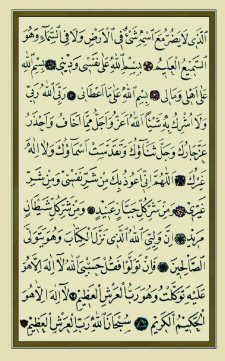 الَّذِي لَا يَضُرُّ مَعَ اسْمِهِ شَيْءٌ فِي الْأَرْضِ وَلَا فِي السَّمَاءِ وَهُوَ
السَّمِيعُ الْعَلِيمُ بِسْمِ اللهِ عَلَى نَفْسِي وَدِينِي بِسْمِ اللهِ
عَلَى أَهْلِي وَمَالِي بِسْمِ اللهِ عَلَى مَا أَعْطَانِي رَبِّي اللهُ رَبِّي
وَلَا أُشْرِكُ بِهِ شَيْئًا اللهُ أَعَزُّ وَأَجَلُّ مِمَّا أَخَافُ وَأَحْذَرُ
عَزَّ جَارُكَ وَجَلَّ ثَنَاؤُكَ وَتَقَدَّسَتْ أَسْمَاؤُكَ وَلَا إِلَهَ
غَيْرُكَ اللَّهُمَّ إِنِّي أَعُوذُ بِكَ مِنْ شَرِّ نَفْسِي وَمِنْ شَرِّ
غَيْرِي وَمِنْ شَرِّ كُلِّ جَبَّارٍ عَنِيدٍ وَمِنْ شَرِّ كُلِّ شَيْطَانٍ
مَرِيدٍ إِنَّ وَلِيِّيَ اللهُ الَّذِي نَزَّلَ الْكِتَابَ وَهُوَ يَتَوَلَّى
الصَّالِحِينَ فَإِنْ تَوَلَّوْا فَقُلْ حَسْبِيَ اللهُ لَا إِلَهَ إِلَّا هُوَ
عَلَيْهِ تَوَكَّلْتُ وَهُوَ رَبُّ الْعَرْشِ الْعَظِيمِ لَا إِلَهَ إِلَّا هُوَ
الْحَكِيمُ الْكَرِيمُ سُبْحَانَ اللهِ رَبِّ الْعَرْشِ الْعَظِيمِ